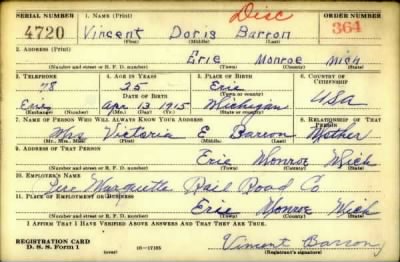 Disc
SERIAL NUMBER 1. NAME (Print) ORDER NUMBER
4720 Vincent Doris Barron 364
(First) (Middle) (Last)
2. ADDRESS (Print)
Erie Monroe Mich
(Number and street or R. F. D. number) (Town) (County) (State)
3. TELEPHONE 4. AGE IN YEARS 5. PLACE OF BIRTH 6. COUNTRY OF CITIZENSHIP
78 25 Erie
DATE OF BIRTH (Town or county)
Erie Apr 13 1915 Michigan USA
(Exchange) (Number) (Mo.) (Day) (Yr.) (State or country)
7. NAME OF PERSON WHO WILL ALWAYS KNOW YOUR ADDRESS 8. RELATIONSHIP OF THAT PERSON
Mrs Victoria E Barron Mother
(Mr., Mrs., Miss) (First) (Middle) (Last)
9. ADDRESS OF THAT PERSON
Erie Monroe Mich
(Number and street or R. F. D. number) (Town) (County) (State)
10. EMPLOYER'S NAME
Pere Marquette Rail Road Co
11. PLACE OF EMPLOYMENT OR BUSINESS
Erie Monroe Mich
(Number and street or R. F. D. number) (Town) (County) (State)
I AFFIRM THAT I HAVE VERIFIED ABOVE ANSWERS AND THAT THEY ARE TRUE.
REGISTRATION CARD
D. S. S. Form 1 (over) 16—17105 Vincent Barron
(Registrant's signature)